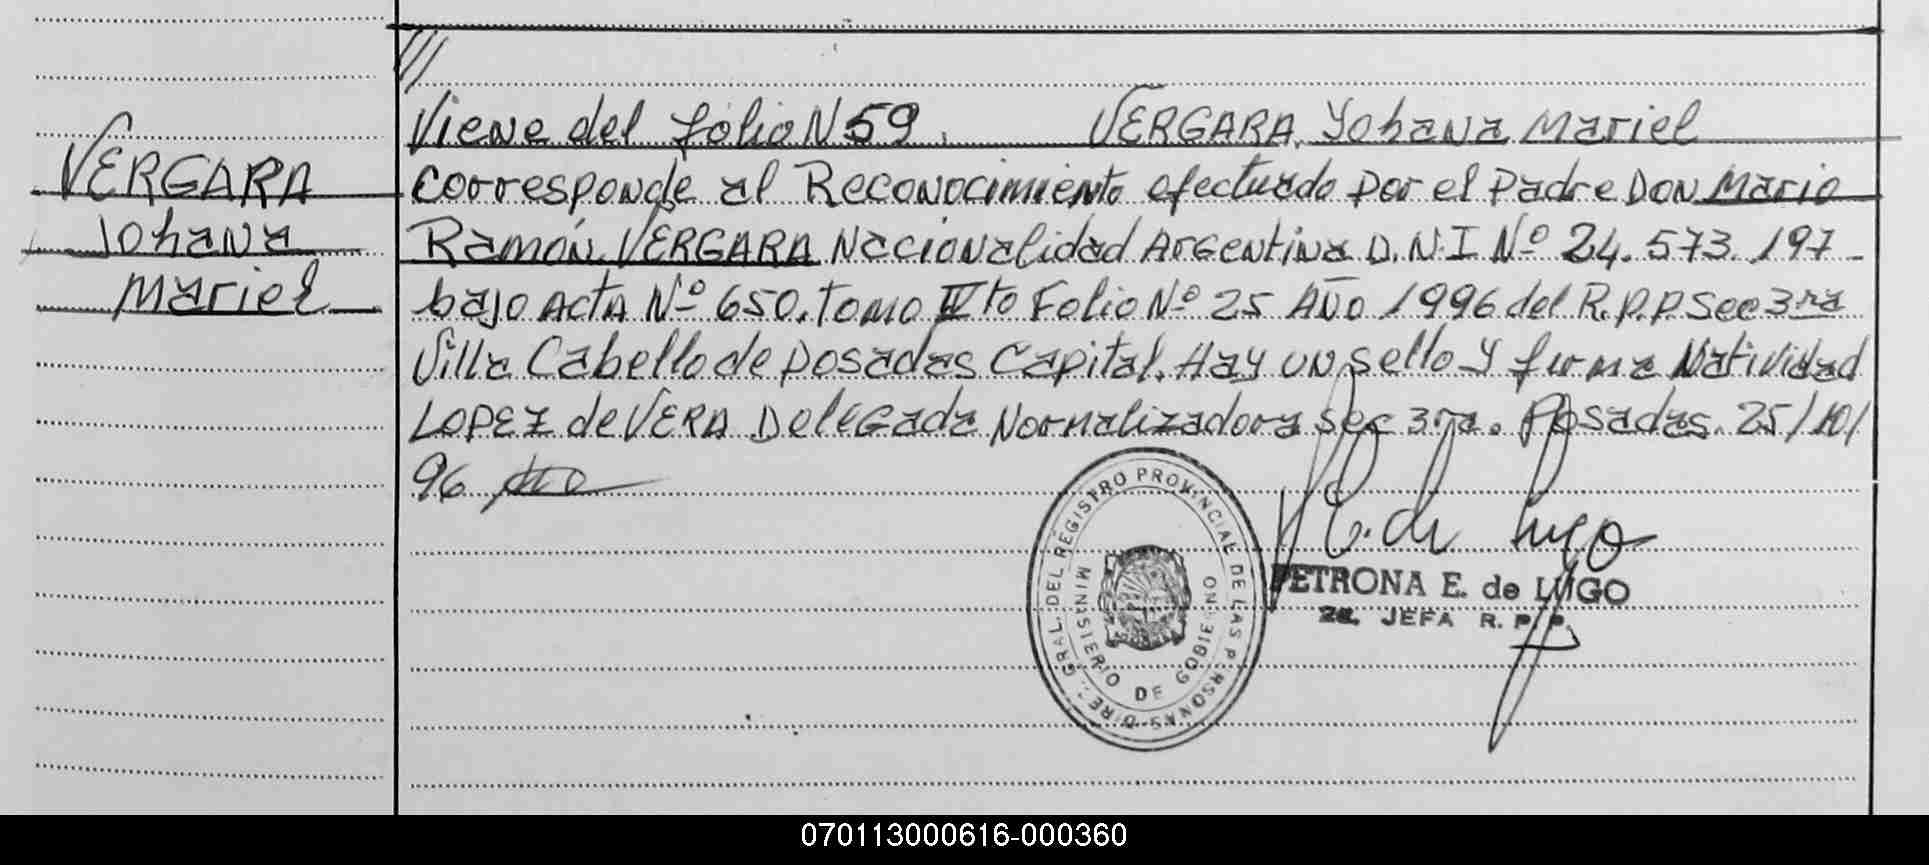 ///
Viene del folio N 59. VERGARA, Yohana Mariel
VERGARA
Yohana
Mariel
corresponde al Reconocimiento efectuado por el padre DON Mario
Ramón VERGARA Nacionalidad Argentina D.N.I Nº 24.573.197
bajo Acta Nº 650. Tomo IVto Folio Nº 25 Año 1996 del R.P.P Sec 3ra
Villa Cabello de posadas Capital. Hay un sello y firma Natividad
LOPEZ de VERA Delegada Normalizadora Sec 3ra. Posadas. 25/10/
96
DIREC. GRAL. DEL REGISTRO PROVINCIAL DE LAS PERSONAS
MINISTERIO DE GOBIERNO
E. de Lugo
PETRONA E. de LUGO
2a. JEFA R. P. P.
070113000616-000360